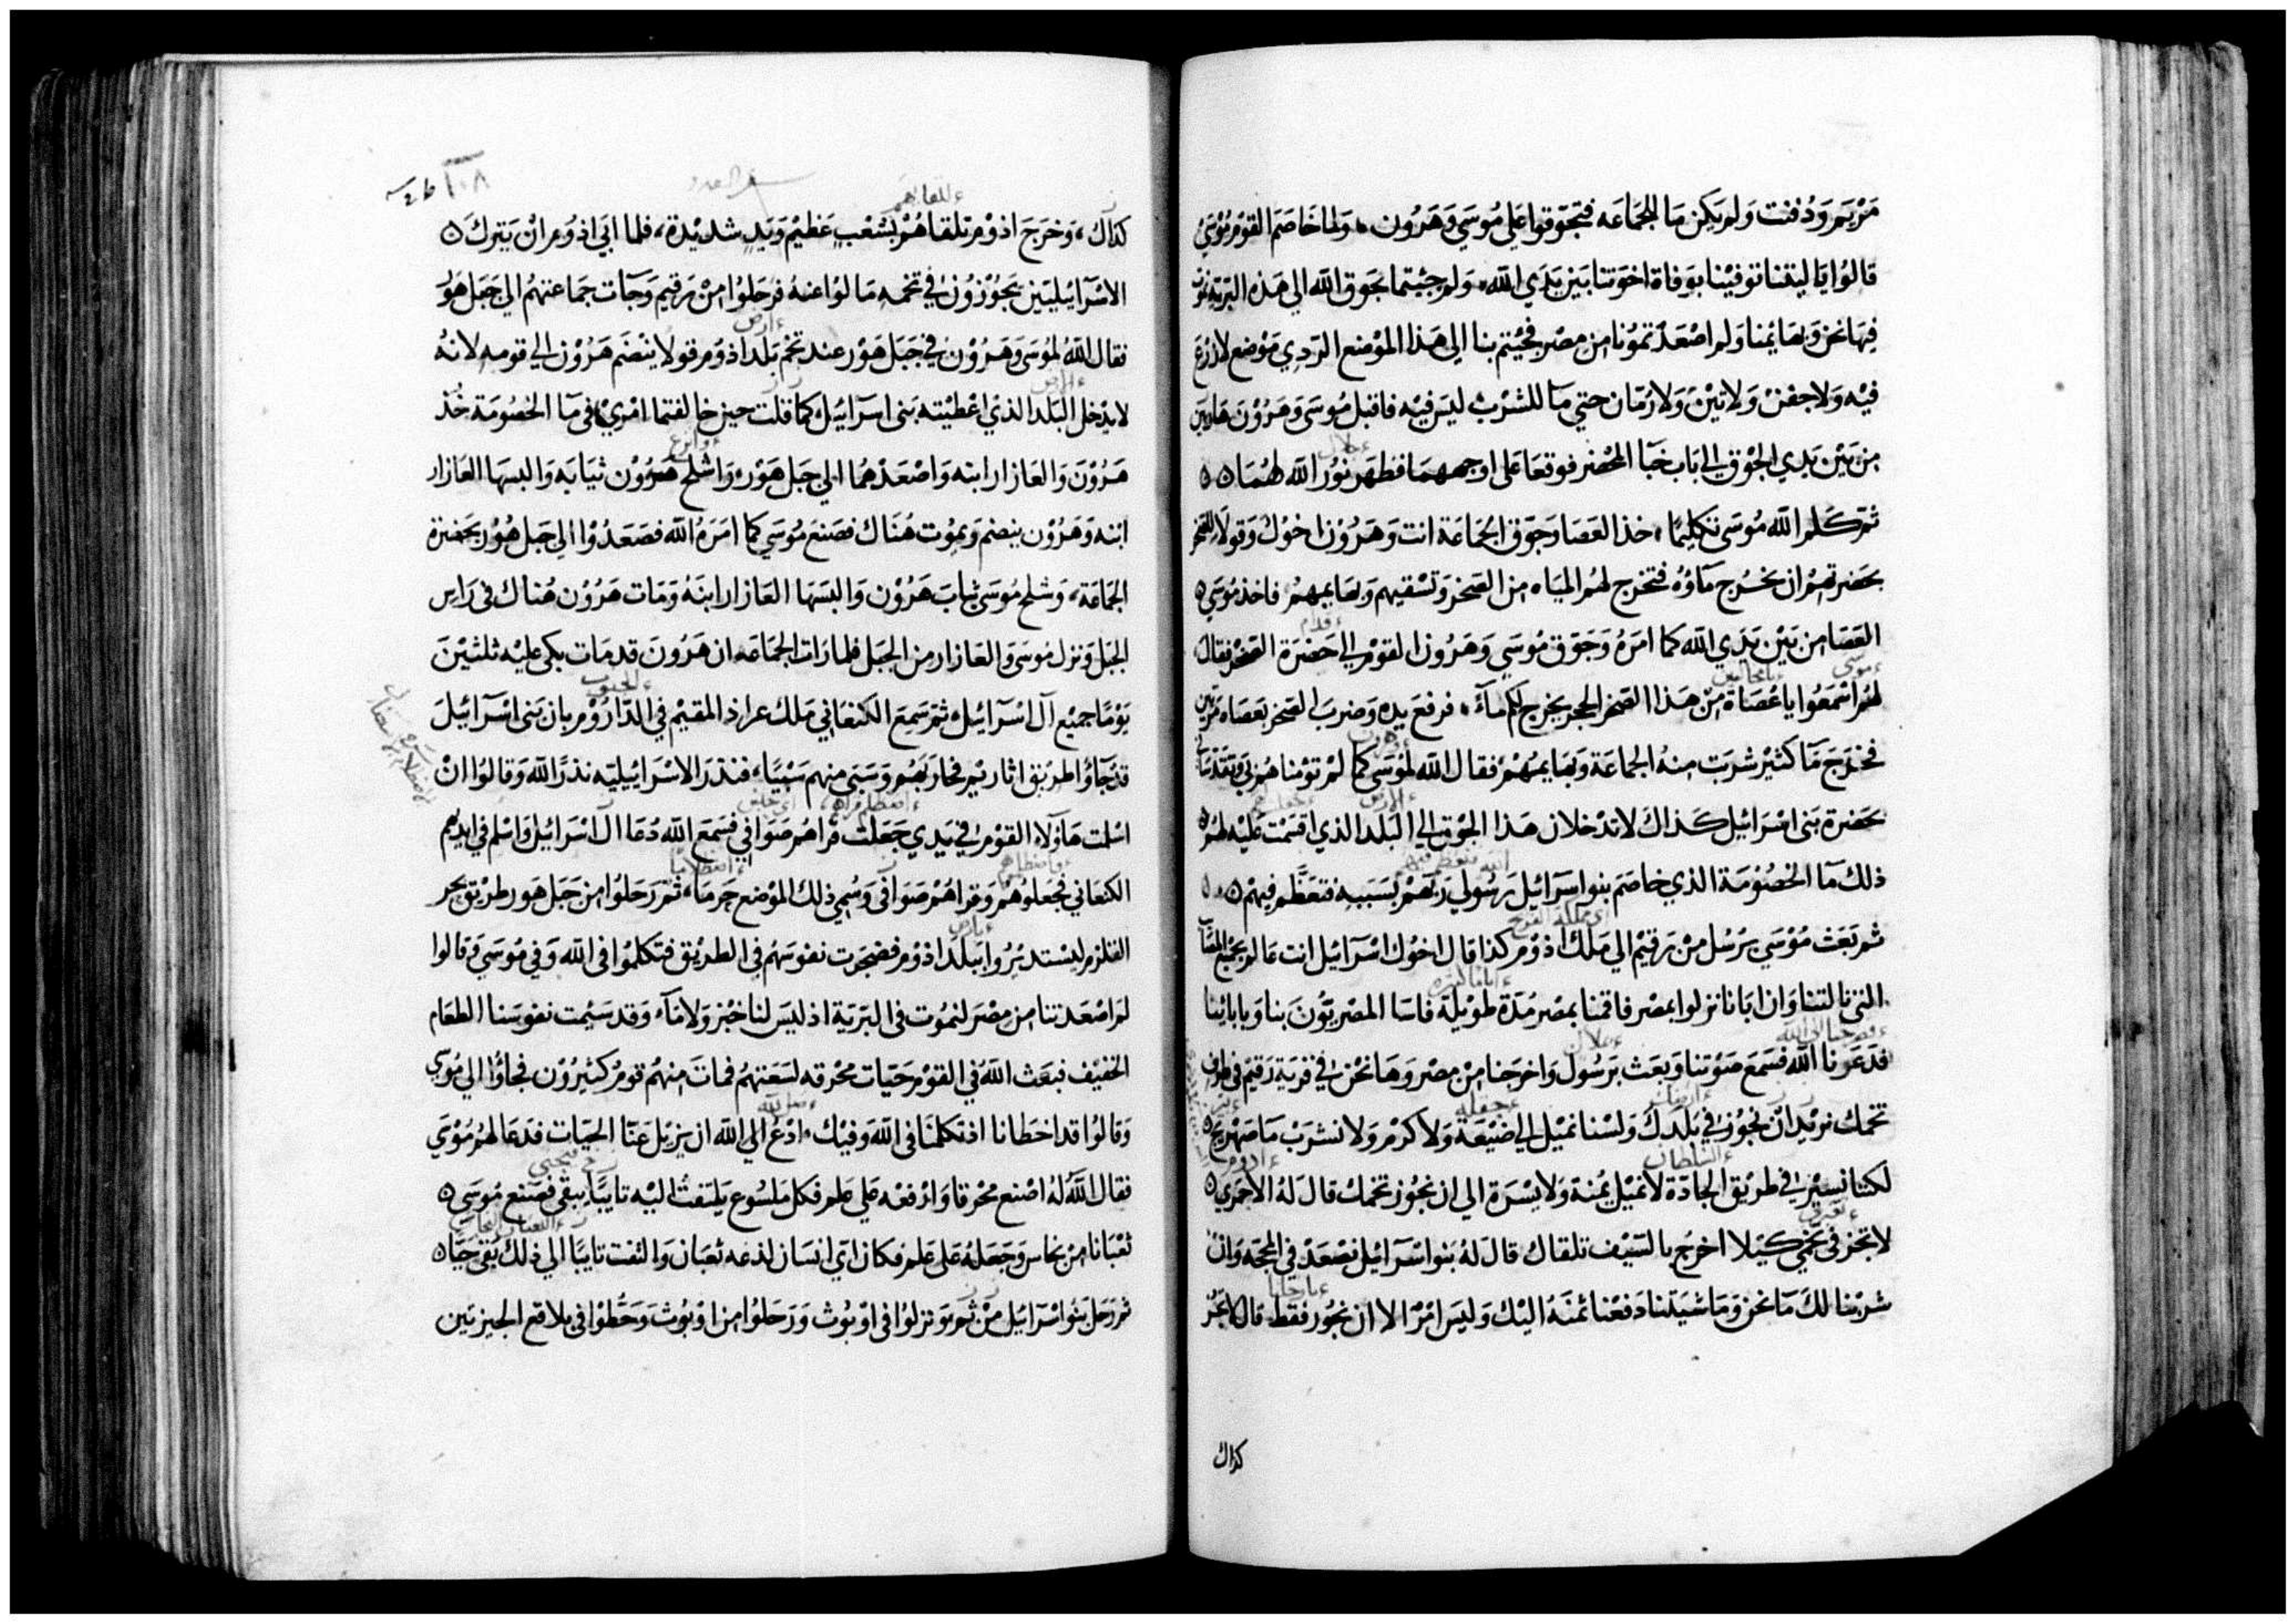 مريم ودفنت ولم يكن ما للجماعه فتجوقوا علي موسي وهرون، ولما خاصم القوم موسي
قالوا يا ليتنا توفينا بوفاة اخوتنا بين يدي الله، ولم جيتما بجوق الله الي هذه البريه نموت
فيها نحن وبهايمنا ولم اصعدتمونا من مصر فجيتم بنا الي هذا الموضع الردي موضع لا زرع
فيه ولا جفن ولا تين ولا رمان حتي ما للشرب ليس فيه فاقبل موسي وهرون هاربين
حلال
من بين يدي الجوق الي باب خبا المحضر فوقعا علي اوجههما فظهر نور الله لهما ه ه
ثم كلم الله موسي تكليما، خذ العصا وجوق الجماعة انت وهرون اخوك وقولا للصخر
بحضرتهم ان يخرج ماؤه فتخرج لهم المياه من الصخر وتسقيهم وبهايمهم فاخذ موسي ه
قدام
العصا من بين يدي الله كما امره وجوق موسي وهرون القوم الي حضرة الصخر فقال
موسي يامخالفين
لهم اسمعوا يا عصاة من هذا الصخر الحجر يخرج لكم مآء، فرفع يده وضرب الصخر بعصاه مرتين
فخرج مآ كثير شربت منه الجماعة وبهايمهم فقال الله لموسي كما لم تومنا هم بي وتقدساني
الارض
بحضرة بني اسرائيل كذاك لا تدخلان هذا الجوق الي البلد الذي اقسمت عليه لهم ه
ذلك مآ الخصومة الذي خاصم بنو اسرآئيل رسولي ربهم بسببه فتعظم فيهم ه ه
ثم بعث موسي برسل من رقيم الي ملك اذوم كذا قال اخوك اسرآئيل انت عالم بجميع المشآق
التي نالتنا وان ابانا نزلوا بمصر فاقمنا بمصر مدة طويلة فاسا المصريون بنا وبابائنا
فدعونا الله فسمع صوتنا وبعث برسول واخرجنا من مصر وها نحن في قرية رقيم في طرف
تخمك نريد ان نجوز في بلدك ولسنا نميل الي ضيعة ولا كرم ولا نشرب ما صهريج ه
السلطان ادوم
لكننا نسير في طريق الجادة لا نميل يمنة ولا يسرة الي ان نجوز تخمك قال له الاحمري ه
لا تجز في تخمي كيلا اخرج بالسيف تلقاك قال له بنو اسرآئيل نصعد في المحجه وان
شربنا لك ما نحن وماشيتنا دفعنا ثمنه اليك وليس امرا الا ان نجوز فقط قال لا تجز
كداك
١٠٨
كداك، وخرج اذوم تلقاهم بشعب عظيم ويد شديدة، فلما ابي اذوم ان يترك ه
الاسرآئيليين يجوزون في تخمه مالوا عنه فرحلوا من رقيم وجآت جماعتهم الي جبل هور
ارض
فقال الله لموسي وهرون في جبل هور عند تخم بلد اذوم قولا ينضم هرون الي قومه لانه
الارض
لا يدخل البلد الذي اعطيته بني اسرآئيل كما قلت حين خالفتما امري في مآ الخصومة خذ
وانزع
هرون والعازار ابنه واصعدهما الي جبل هور، واشلح هرون ثيابه والبسها العازار
ابنه وهرون ينضم ويموت هناك فصنع موسي كما امره الله فصعدوا الي جبل هور بحضرة
الجماعة، وشلح موسي ثياب هرون والبسها العازار ابنه ومات هرون هناك في راس
الجبل ونزل موسي والعازار من الجبل فلما رات الجماعه ان هرون قد مات بكي عليه ثلثين
الجنوب
يوما جميع آل اسرآئيل، ثم سمع الكنعاني ملك عراد المقيم في الداروم بان بني اسرآئيل
قد جآوا طريق اثاريم فحاربهم وسبي منهم سبيا، فنذر الاسرائيليه نذرا لله وقالوا ان
اسلمت هاولاء القوم في يدي جعلت قراهم صوافي فسمع الله دعا آل اسرائيل واسلم في ايديهم
الكنعاني فجعلوهم وقراهم صوافي وسمي ذلك الموضع حرما، ثم رحلوا من جبل هور طريق بحر
بارض
القلزم ليستديروا ببلد اذوم فضجرت نفوسهم في الطريق فتكلموا في الله وفي موسي وقالوا
لم اصعدتنا من مصر لنموت في البرية اذ ليس لنا خبز ولا مآء وقد سيمت نفوسنا الطعام
الخفيف فبعث الله في القوم حيات محرقه لسعتهم فمات منهم قوم كثيرون فجاؤا الي موسي
وقالوا قد اخطانا اذ تكلمنا في الله وفيك، ادع الي الله ان يزيل عنا الحيات فدعا لهم موسي
فقال الله له اصنع محرقا وارفعه علي علم فكل ملسوع يلتفت اليه تايبا يبقي فصنع موسي ه
ثعبانا من نحاس وجعله علي علم فكان اي انسان لذعه ثعبان والتفت تايبا الي ذلك بقي حيا ه
ثم رحل بنو اسرآئيل من ثم ونزلوا في اوبوث ورحلوا من اوبوث وحطوا في بلاقع الجيزتين